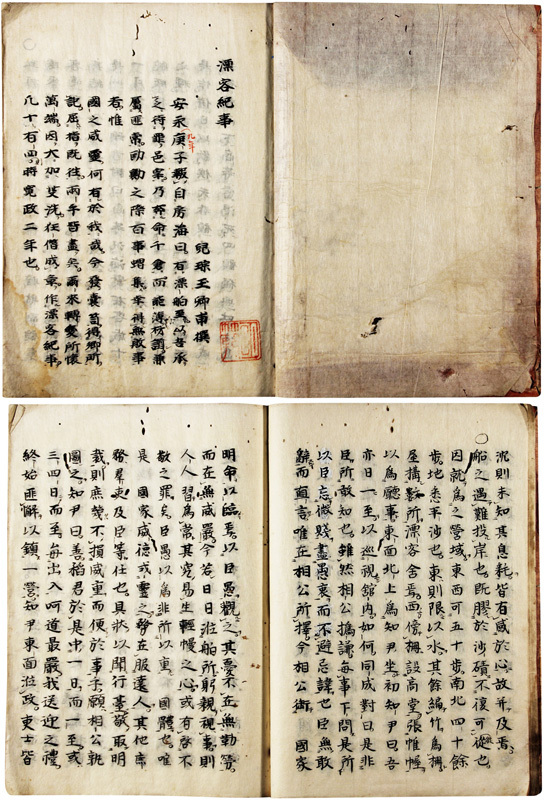 漂客紀事
兒琮玉卿甫撰
安永庚子報自房海曰有漂舶至以吾承
九年
之待罪邑宰乃祗命于倉而
百事蝟集幸得無敗事
者惟
國之威靈何有於我哉今發囊首得鄉所
記屈指既往兩年皆盡矣爾來轉變所懷
萬端因大加芟洗往僣成章作漂客紀事
凡十有四將寬政二年也
則未知其息耗皆有感於心故并及焉
船之遇難投岸也既膠於沙磧不復可從也
因就為之營域東西可五十步南北四十餘
步地悉平沙也東則限以水其餘編竹為柵
屋搆數所漂客舍焉西傍柵設高堂張帷幄
以為廳事東面北上為知尹坐初知尹曰吾
亦日一至以巡視館内如何同成對曰是非
臣所敢知也雖然相公撝謙每事下問是所
以臣忘微賤盡愚衷而不避忌諱也臣無敢
辭而面言唯在相公所擇今相公銜 國家
明命以臨焉以臣愚觀之其憂不在無勤勞
而在無威嚴今若日日涖舶所躬親視事則
人人習為常其究易生輕慢之心或有啓不
敬之罪矣臣愚以為非所以重 國體也唯
是 國家威德或靈之勢在服遠人其他庶
務羣吏及臣等任也具狀以聞行臺敬取明
裁則庶幾不損威重而便於事乎願相公執
圖之知尹曰善裕君於是中一日而一至或
三四日而至每出入呵道最嚴我送迎之禮
終始匪懈以鎮一營知尹東面涖政吏士皆